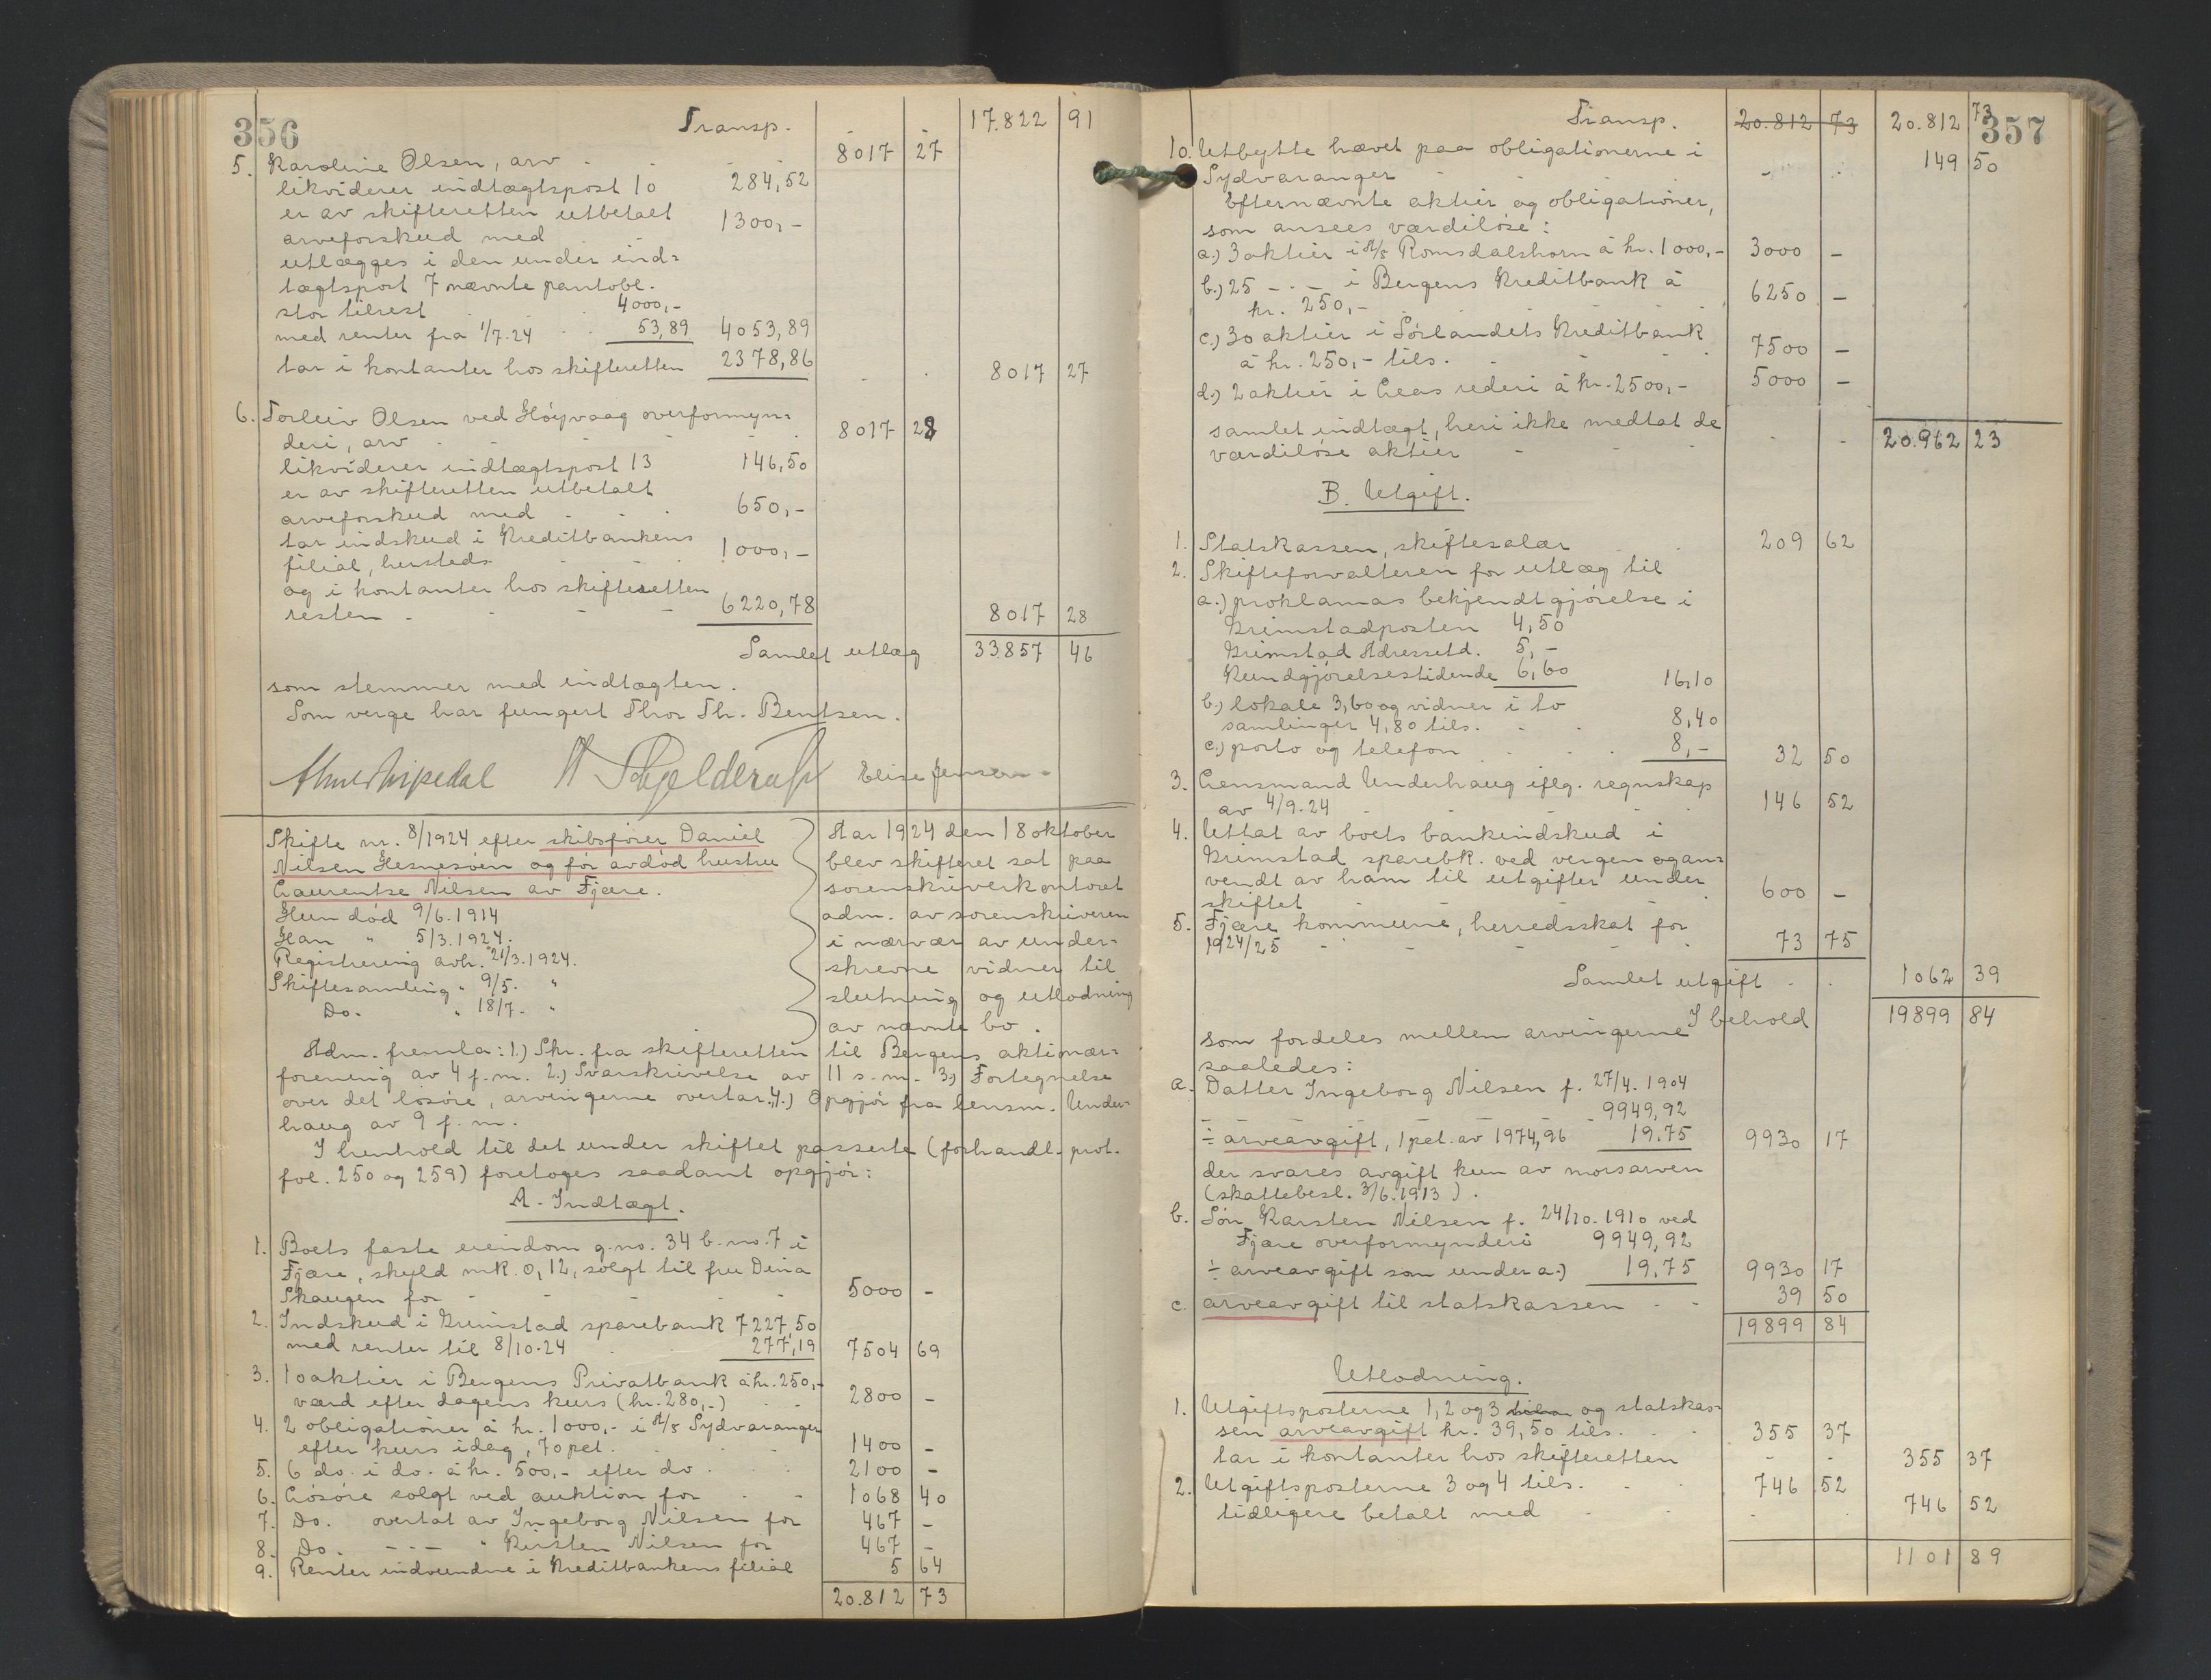 356
Transp. 17.822 91
5. Karoline Olsen, arv - - - - 8017 27
likviderer indtægtspost 10 284,52
er av skifteretten utbetalt
arveforskud med 1300,-
utlægges i den under ind-
tægtspost 7 nævnte pantobl.
stor tilrest 4000,-
med renter fra 1/7-24 53,89 4053,89
tar i kontanter hos skifteretten 2378,86 - - 8017 27
6. Torleiv Olsen ved Høyvaag overformyn-
deri, arv - - - - 8017 28
likviderer indtægtspost 13 146,50
er av skifteretten utbetalt
arveforskud med 650,-
tar indskud i Kreditbankens
filial, hersteds 1000,-
og i kontanter hos skifteretten
resten - - - 6220,78 8017 28
Samlet utlæg 33857 46
som stemmer med indtægten.
Som verge har fungert Thor Th. Bentsen.
Elise Jensen
Skifte nr. 8/1924 efter skibsfører Daniel
Nilsen Hesnesøen og før avdød hustru
Laurentse Nilsen av Fjære.
Hun død 9/6.1914
Han " 5/3.1924.
Registrering avh. 21/3.1924.
Skiftesamling " 9/5. "
Do. " 18/7. "
Aar 1924 den 18 oktober
blev skifteret sat paa
sorenskriverkontoret
adm. av sorenskriveren
i nærvær av under-
skrevne vidner til
slutning og utlodning
av nævnte bo.
Adm. fremla: 1.) Skr. fra skifteretten til Bergens aktionær-
forening av 4 f.m. 2.) Svarskrivelse av 11 s.m. 3.) Fortegnelse
over det løsøre, arvingerne overtar. 4.) Opgjør fra lensm. Under-
haug av 9 f.m.
I henhold til det under skiftet passerte (forhandl. prot.
fol. 250 og 259) foretoges saadant opgjør:
A. Indtægt.
1. Boets faste eiendom g.no. 34 b.no. 7 i
Fjære, skyld mk. 0,12, solgt til fru Dina
Skaugen for - - - - 5000 -
2. Indskud i Grimstad sparebank 7227,50
med renter til 8/10-24 277,19 7504 69
3. 10 aktier i Bergens Privatbank à kr. 250,-
værd efter dagens kurs (kr. 280,-) 2800 -
4. 2 obligationer à kr. 1000,- i A/S Sydvaranger
efter kurs idag, 70 pct. 1400 -
5. 6 do. i do. à kr. 500,- efter do 2100 -
6. Løsøre solgt ved auktion for - - 1068 40
7. Do. overtat av Ingeborg Nilsen for 467 -
8. Do. - - - " Karsten Nilsen for 467 -
9. Renter indvundne i Kreditbankens filial 5 64
20.812 73
357
Transp. 20.812 73 20.812 73
10. Utbytte hævet paa obligationerne i
Sydvaranger - - - 149 50
Efternævnte aktier og obligationer,
som ansees værdiløse:
a.) 3 aktier i A/S Romsdalshorn à kr. 1000,- 3000 -
b.) 25 - - - i Bergens Kreditbank à
kr. 250,- 6250 -
c.) 30 aktier i Sørlandets Kreditbank
à kr. 250,- tils. 7500 -
d.) 2 aktier i Ceas rederi à kr. 2500,- 5000 -
samlet indtægt, heri ikke medtat de
værdiløse aktier - - - 20.962 23
B. Utgift.
1. Statskassen, skiftesalær 209 62
2. Skifteforvalteren for utlæg til
a.) proklamas bekjendtgjørelse i
Grimstadposten 4,50
Grimstad Adressetd. 5,-
Kundgjørelsestidende 6,60 16,10
b.) lokale 3,60 og vidner i to
samlinger 4,80 tils. 8,40
c.) porto og telefon 8,- 32 50
3. Lensmand Underhaug iflg. regnskap
av 4/9-24 146 52
4. Uttat av boets bankindskud i
Grimstad sparebk. ved vergen og an-
vendt av ham til utgifter under
skiftet 600 -
5. Fjære kommune, herredsskat for
1924/25 - - - - 73 75
Samlet utgift - - 1062 39
I behold 19899 84
som fordeles mellem arvingerne
saaledes:
a. Datter Ingeborg Nilsen f. 27/4.1904
- - - - - 9949,92
÷ arveavgift, 1 pct. av 1974,96 19.75 9930 17
der svares avgift kun av morsarven
(skattebesl. 3/6.1913).
b. Søn Karsten Nilsen f. 24/10.1910 ved
Fjære overformynderi 9949,92
÷ arveavgift som under a.) 19.75 9930 17
c. arveavgift til statskassen - - 39 50
19899 84
Utlodning.
1. Utgiftsposterne 1, 2 og 3 og statskas-
sen arveavgift kr. 39,50 tils. 355 37
tar i kontanter hos skifteretten - - 355 37
2. Utgiftsposterne 3 og 4 tils. 746 52
tidligere betalt med - - 746 52
1101 89